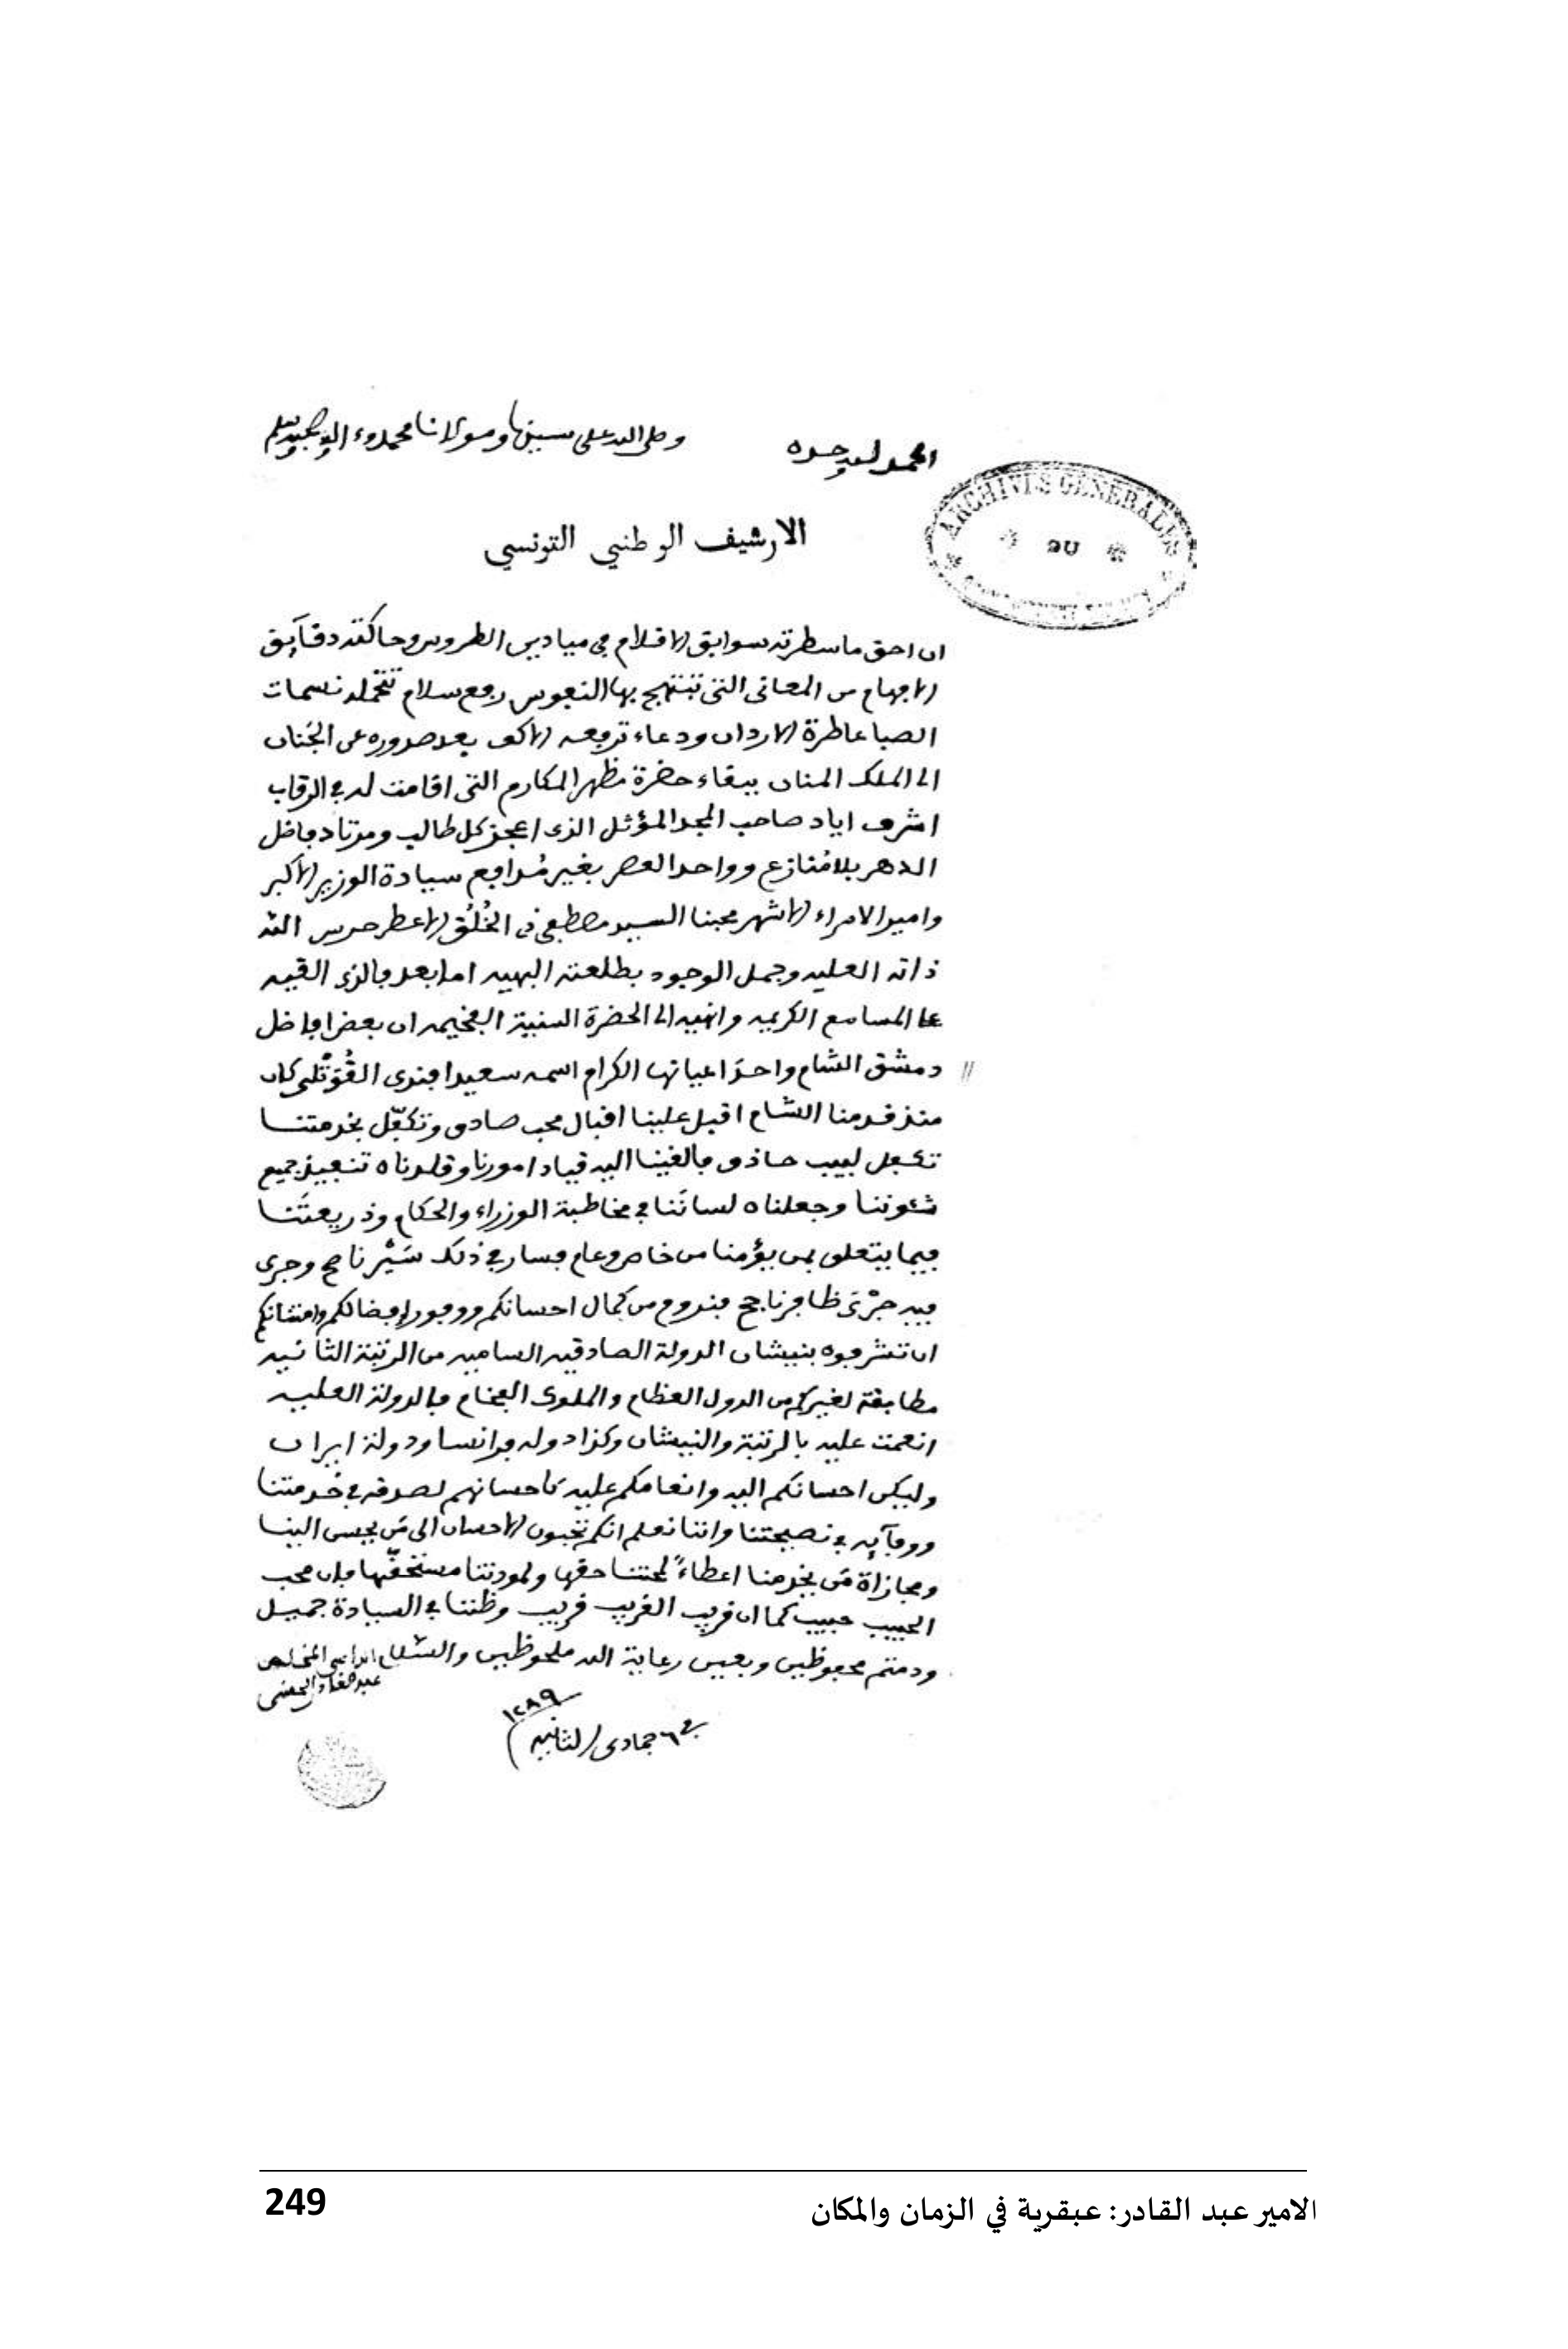 الحمد لله وحده
وصلى الله على سيدنا ومولانا محمد وءاله وصحبه وسلم
ARCHIVES GENERALES
DU
الارشيف الوطني التونسي
ان احق ما سطرته سوابق الاقلام في ميادين الطروس وحاكته دقآيق
الافهام من المعانى التى تبتهج بها النفوس رفع سلام تتحمله نسمات
الصبا عاطرة الاردان ودعاء ترفعه الاكف بعد صدوره عن الجَنان
الى الملك المنان ببقاء حضرة مظهر المكارم التى اقامت له في الرقاب
اشرف اياد صاحب المجد المؤثل الذى اعجز كل طالب ومرتاد فاضل
الدهر بلا مُنازع وواحد العصر بغير مُدافع سيادة الوزير الاكبر
وامير الامراء الاشهر محبنا السيد مصطفى ذى الخُلُق الاعطر حرس الله
ذاته العليه وجمل الوجود بطلعته البهيه اما بعد فالذى القيه
على المسامع الكريمه وانهيه الى الحضرة السنية الفخيمه ان بعض افاضل
دمشق الشام واحدَ اعيانها الكرام اسمه سعيد افندى القُوَتْلى كان
منذ قدمنا الشام اقبل علينا اقبال محب صادق وتكفّل بخدمتنا
تكفل لبيب حاذق فالقينا اليه قياد امورنا وقلدناه تنفيذ جميع
شئوننا وجعلناه لسانَنا في مخاطبة الوزراء والحكام وذريعتَنا
فيما يتعلق بمن يؤمنا من خاص وعام فسار في ذلك سَيْر ناصح وجرى
فيه جرْىَ ظافر ناجح فنروم من كمال احسانكم ووفور افضالكم وامتنانكم
ان تشرفوه بنيشان الدولة الصادقيه الساميه من الرتبة الثانيه
مطابقة لغيركم من الدول العظام والملوك الفخام فالدولة العليه
انعمت عليه بالرتبة والنيشان وكذا دوله فرانسا ودولة ايران
وليكن احسانكم اليه وانعامكم عليه كاحسانهم لصدقه في خدمتنا
ووفآيه في نصيحتنا واننا نعلم انكم تحبون الاحسان الى مَن يحسن الينا
ومجازاة مَن يخدمنا اعطاءً لمحبتنا حقها ولمودتنا مستحقّها فان محب
الحبيب حبيب كما ان قريب القريب قريب وظننا في السيادة جميل
ودمتم محفوظين وبعين رعاية الله ملحوظين والسلام الداعى المخلص
عبد القادر الحسنى
في ٦ جمادى الثانيه
١٢٨٩
249
الامير عبد القادر: عبقرية في الزمان والمكان